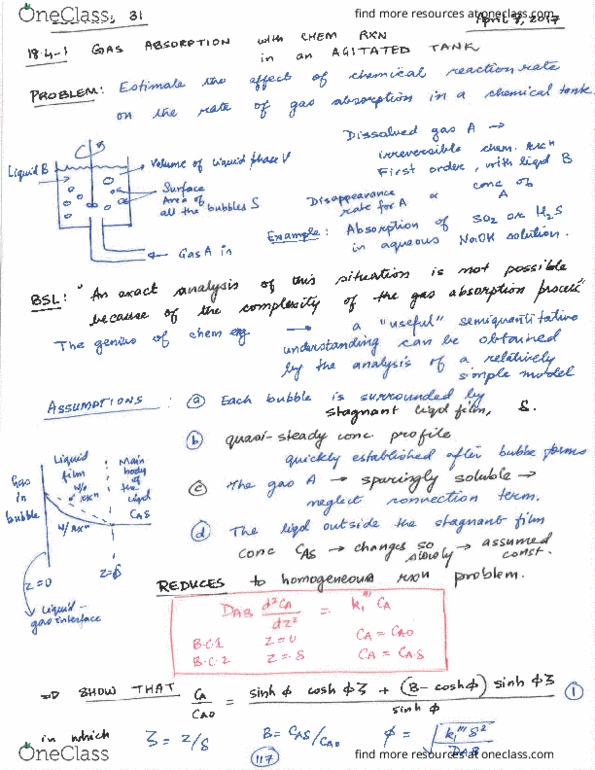 OneClass
find more resources at oneclass.com
31
April 7, 2017
18.4-1 GAS ABSORPTION with CHEM RXN
in an AGITATED TANK
PROBLEM: Estimate the effect of chemical reaction rate
on the rate of gas absorption in a chemical tank.
Liquid B
Volume of liquid phase V
Surface
Area of
all the bubbles S
Gas A in
Dissolved gas A →
irreversible chem. rxn
First order, with liqd B
Disappearance
rate for A ∝ conc of
A
Example: Absorption of SO2 or H2S
in aqueous NaOH solution.
BSL: "An exact analysis of this situation is not possible
because of the complexity of the gas absorption process"
The genius of chem eng → a "useful" semiquantitative
understanding can be obtained
by the analysis of a relatively
simple model
ASSUMPTIONS : (a) Each bubble is surrounded by
stagnant liqd film, δ.
(b) quasi-steady conc profile
quickly established after bubble forms
(c) The gas A → sparingly soluble →
neglect convection term.
(d) The liqd outside the stagnant film
conc CAδ → changes so slowly → assumed
const.
Gas
in
bubble
Liquid
film
w/o
rxn
w/ rxn
Main
body
of
the
liqd
CAδ
z=0
z=δ
Liquid-
gas interface
REDUCES to homogeneous rxn problem.
DAB d²CA/dz² = k1''' CA
B.C.1 z=0 CA = CA0
B.C.2 z=δ CA = CAδ
⇒ SHOW THAT CA/CA0 = sinh φ cosh φζ + (B- coshφ) sinh φζ / sinh φ (1)
in which ζ = z/δ B= CAδ/CA0 φ = √k1'''δ²/DAB
117
OneClass
find more resources at oneclass.com